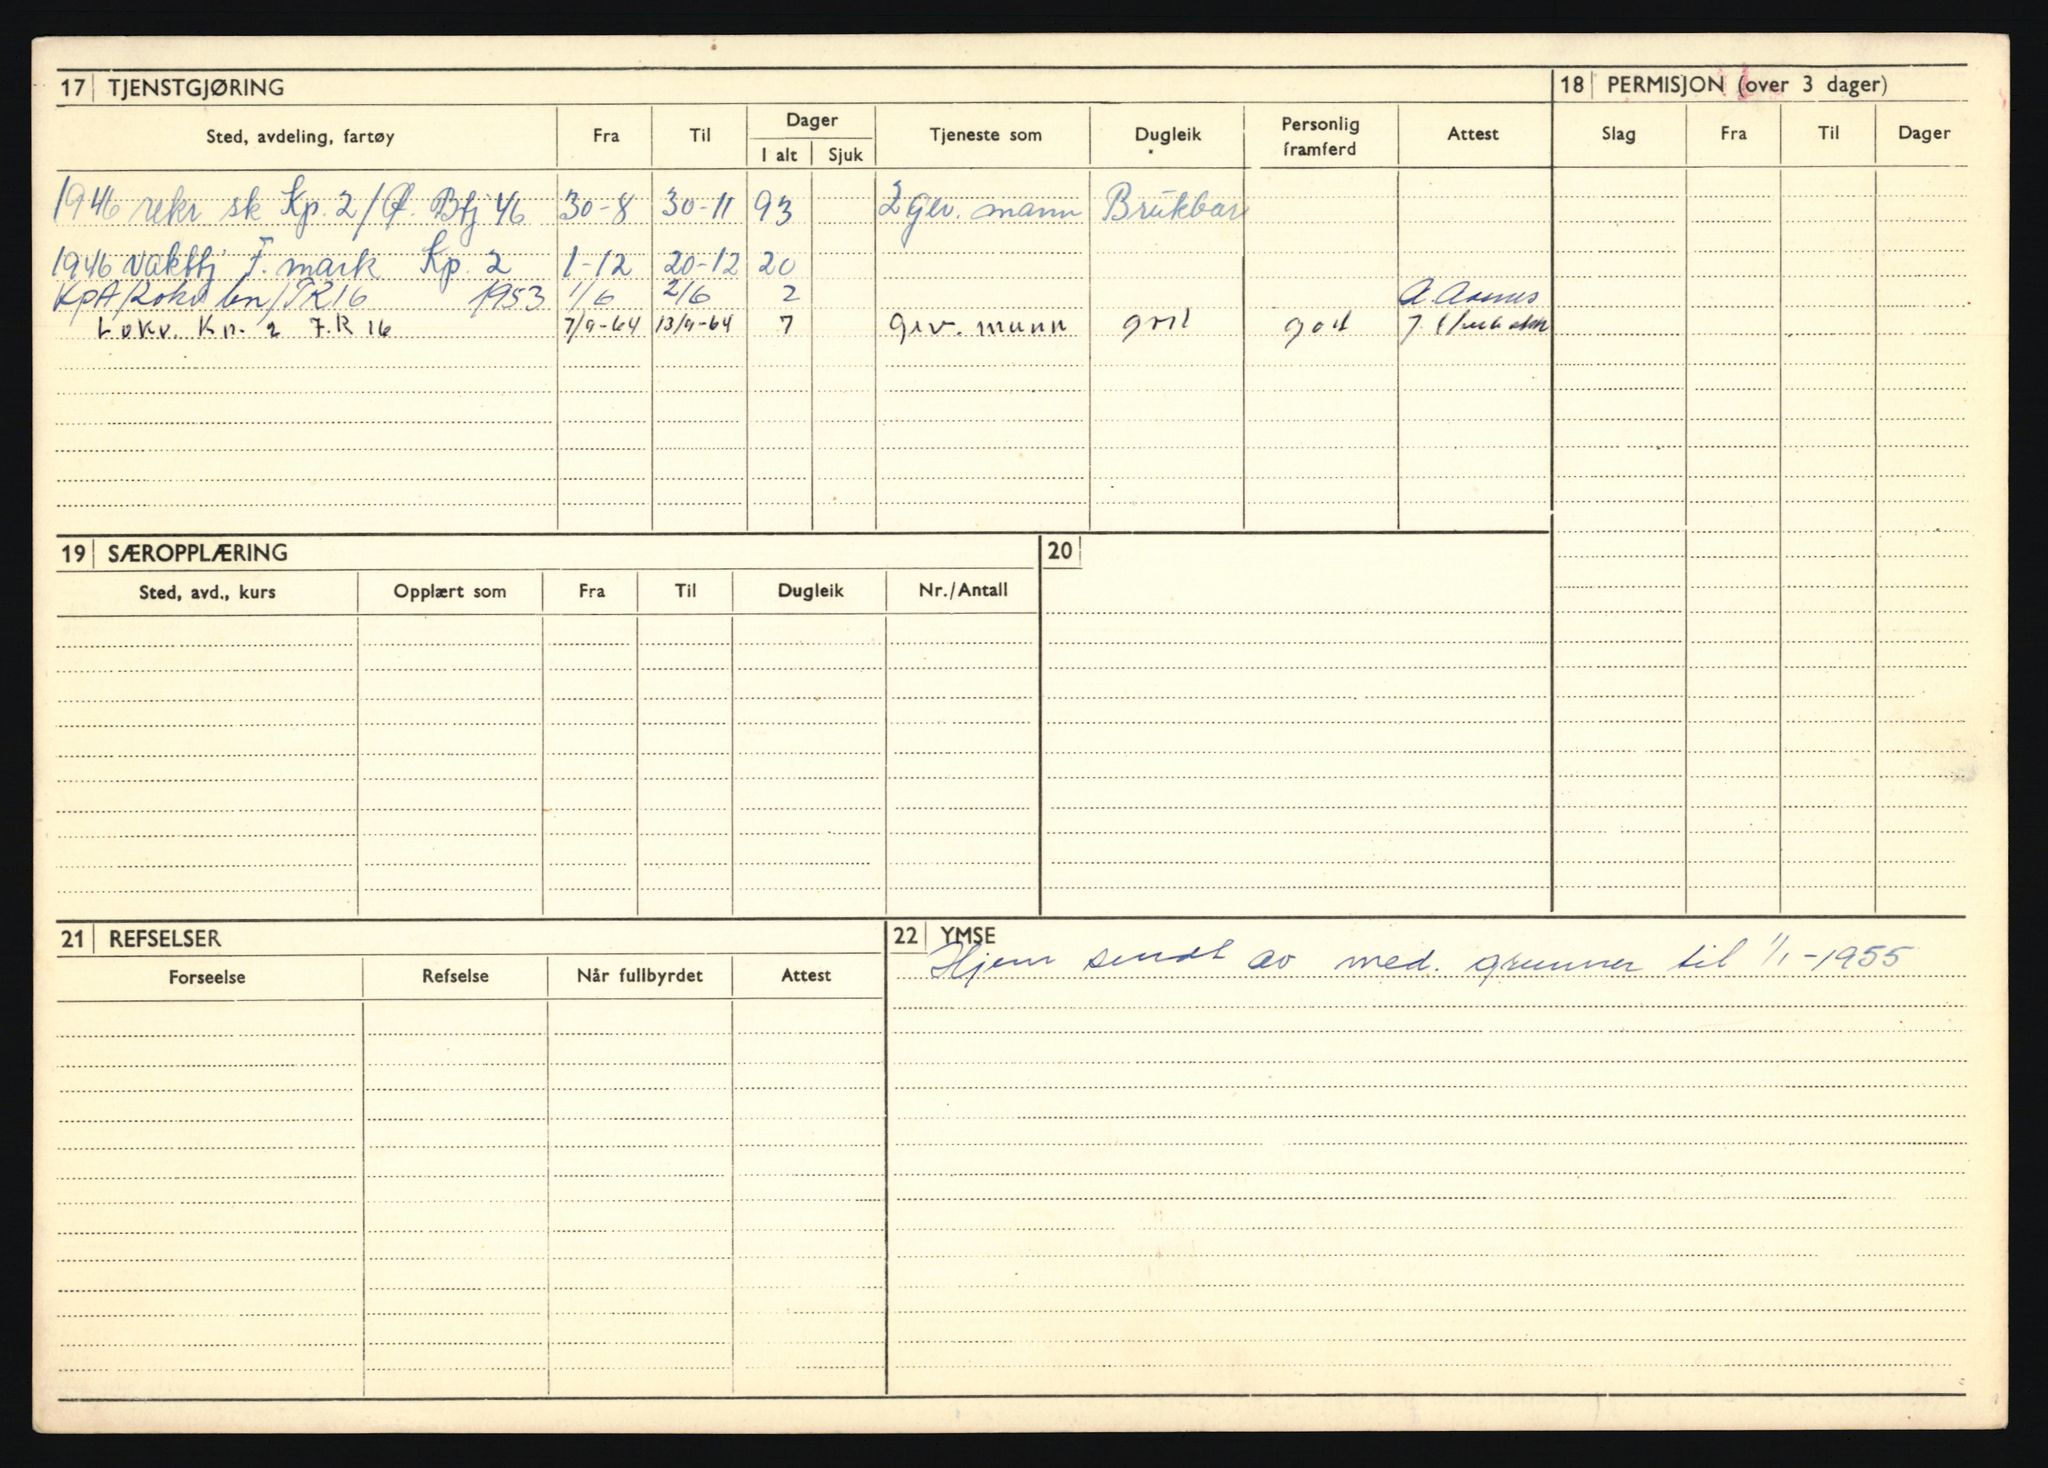 17 TJENSTGJØRING 18 PERMISJON (over 3 dager)
Sted, avdeling, fartøy Fra Til Dager I alt Sjuk Tjeneste som Dugleik Personlig framferd Attest Slag Fra Til Dager
1946 rekr sk Kp. 2/Ø. Bfj 46 30-8 30-11 93 2 gev. mann Brukbar
1946 vaktbj F. mark Kp. 2 1-12 20-12 20
KpA/Lokv bn/IR16 1953 1/6 2/6 2 A.
Lokv. Kp. 2 I.R 16 7/9-64 13/9-64 7 gev. mann god god
19 SÆROPPLÆRING 20
Sted, avd., kurs Opplært som Fra Til Dugleik Nr./Antall
21 REFSELSER
Forseelse Refselse Når fullbyrdet Attest
22 YMSE
Hjem sendt av med. grunner til 1/1-1955